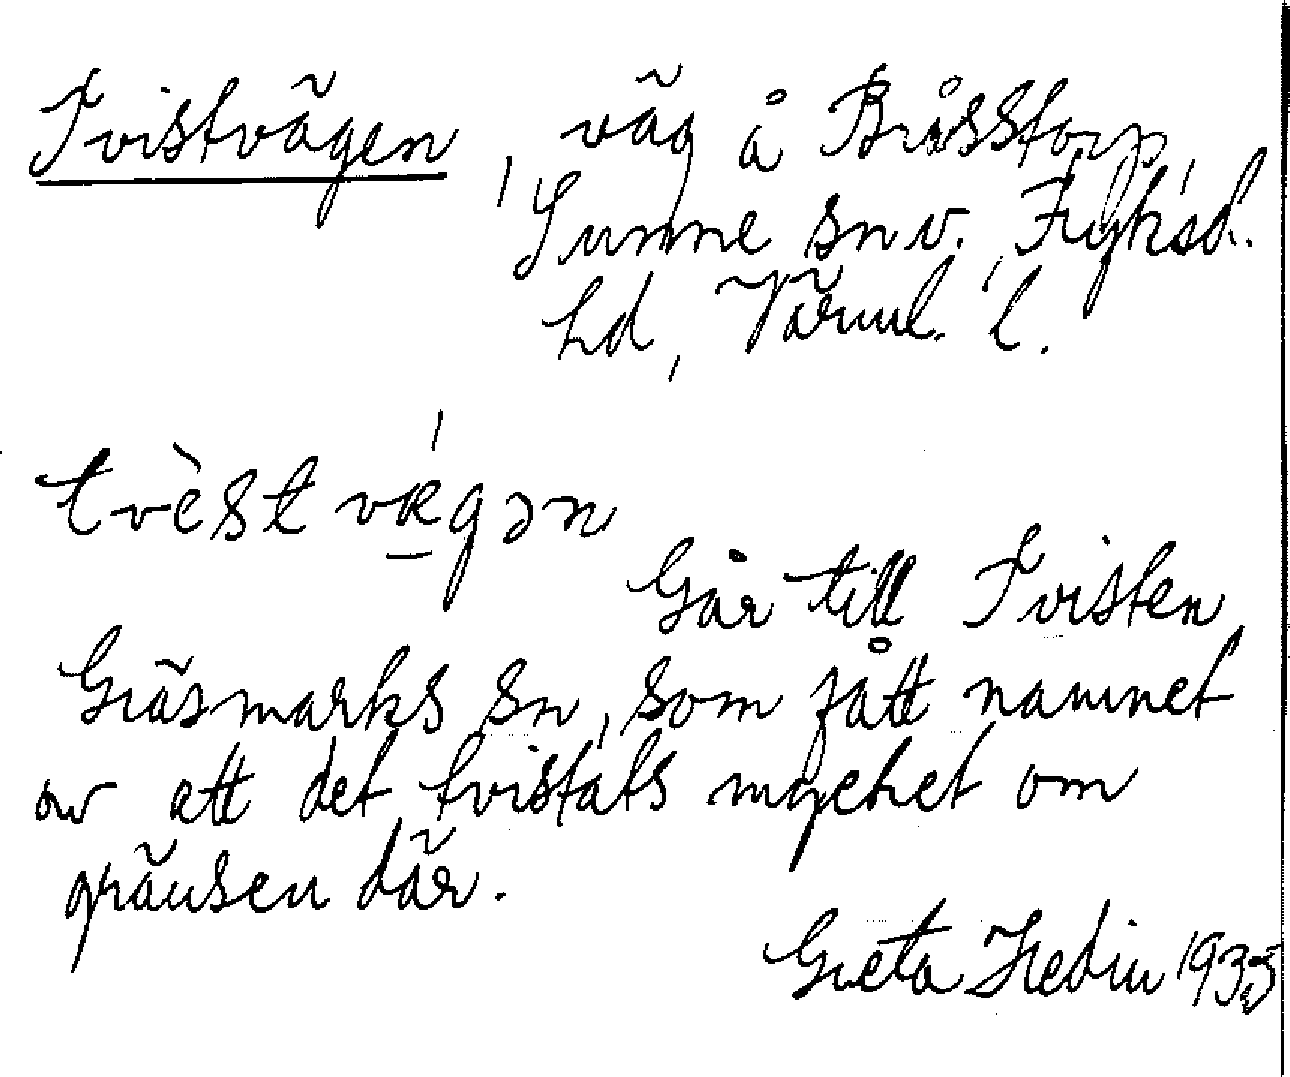 Tvistvägen, väg å Bråsstorp,
Sunne snv. Fryksd.
hd, Värml. l.
tvèst væ̲´gən
Går till Tvisten,
Gräsmarks sn, som fått namnet
av att det tvistats mycket om
gränsen där.
Greta Hedin 1933